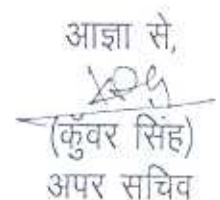 आज्ञा से,
(कुँवर सिंह)
अपर सचिव